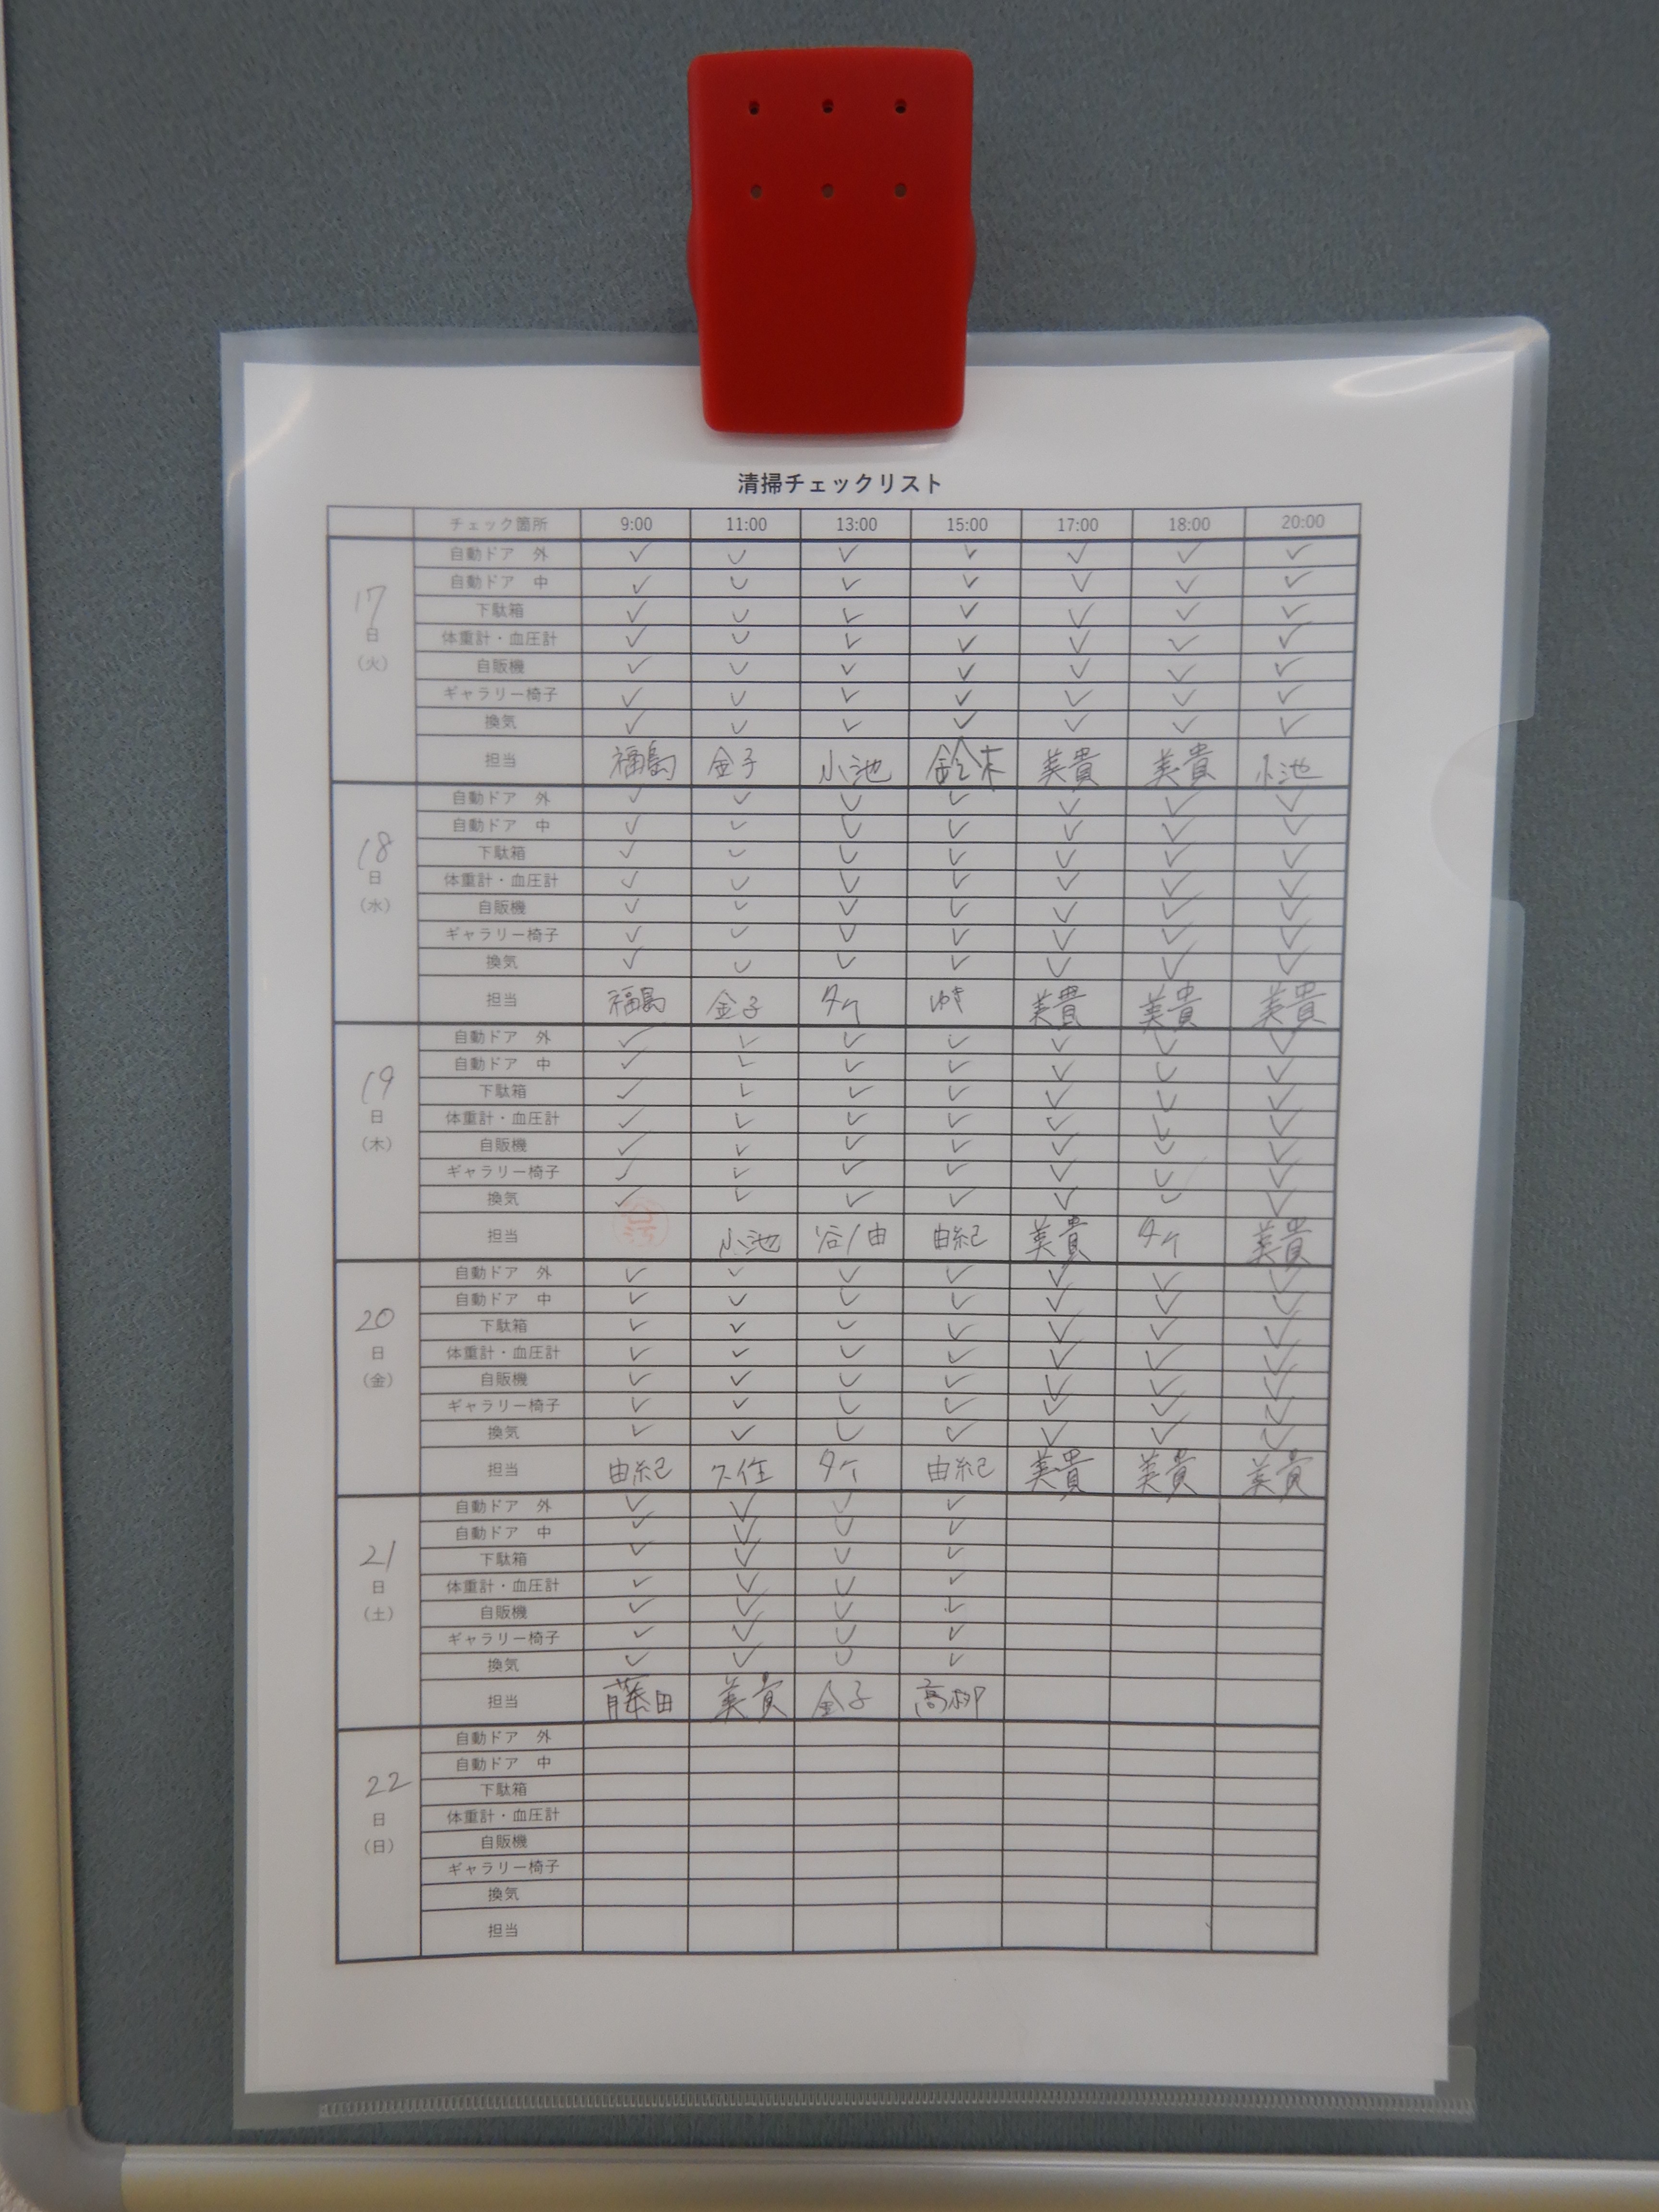 清掃チェックリスト
チェック箇所 9:00 11:00 13:00 15:00 17:00 18:00 20:00
17日(火)
自動ドア 外 ✓ ✓ ✓ ✓ ✓ ✓ ✓
自動ドア 中 ✓ ✓ ✓ ✓ ✓ ✓ ✓
下駄箱 ✓ ✓ ✓ ✓ ✓ ✓ ✓
体重計・血圧計 ✓ ✓ ✓ ✓ ✓ ✓ ✓
自販機 ✓ ✓ ✓ ✓ ✓ ✓ ✓
ギャラリー椅子 ✓ ✓ ✓ ✓ ✓ ✓ ✓
換気 ✓ ✓ ✓ ✓ ✓ ✓ ✓
担当 福島 金子 小池 鈴木 美貴 美貴 小池
18日(水)
自動ドア 外 ✓ ✓ ✓ ✓ ✓ ✓ ✓
自動ドア 中 ✓ ✓ ✓ ✓ ✓ ✓ ✓
下駄箱 ✓ ✓ ✓ ✓ ✓ ✓ ✓
体重計・血圧計 ✓ ✓ ✓ ✓ ✓ ✓ ✓
自販機 ✓ ✓ ✓ ✓ ✓ ✓ ✓
ギャラリー椅子 ✓ ✓ ✓ ✓ ✓ ✓ ✓
換気 ✓ ✓ ✓ ✓ ✓ ✓ ✓
担当 福島 金子 タケ ゆき 美貴 美貴 美貴
19日(木)
自動ドア 外 ✓ ✓ ✓ ✓ ✓ ✓ ✓
自動ドア 中 ✓ ✓ ✓ ✓ ✓ ✓ ✓
下駄箱 ✓ ✓ ✓ ✓ ✓ ✓ ✓
体重計・血圧計 ✓ ✓ ✓ ✓ ✓ ✓ ✓
自販機 ✓ ✓ ✓ ✓ ✓ ✓ ✓
ギャラリー椅子 ✓ ✓ ✓ ✓ ✓ ✓ ✓
換気 ✓ ✓ ✓ ✓ ✓ ✓ ✓
担当 小池 谷/由 由紀 美貴 タケ 美貴
20日(金)
自動ドア 外 ✓ ✓ ✓ ✓ ✓ ✓ ✓
自動ドア 中 ✓ ✓ ✓ ✓ ✓ ✓ ✓
下駄箱 ✓ ✓ ✓ ✓ ✓ ✓ ✓
体重計・血圧計 ✓ ✓ ✓ ✓ ✓ ✓ ✓
自販機 ✓ ✓ ✓ ✓ ✓ ✓ ✓
ギャラリー椅子 ✓ ✓ ✓ ✓ ✓ ✓ ✓
換気 ✓ ✓ ✓ ✓ ✓ ✓ ✓
担当 由紀 久住 タケ 由紀 美貴 美貴 美貴
21日(土)
自動ドア 外 ✓ ✓ ✓ ✓
自動ドア 中 ✓ ✓ ✓ ✓
下駄箱 ✓ ✓ ✓ ✓
体重計・血圧計 ✓ ✓ ✓ ✓
自販機 ✓ ✓ ✓ ✓
ギャラリー椅子 ✓ ✓ ✓ ✓
換気 ✓ ✓ ✓ ✓
担当 藤田 美貴 金子 高柳
22日(日)
自動ドア 外
自動ドア 中
下駄箱
体重計・血圧計
自販機
ギャラリー椅子
換気
担当